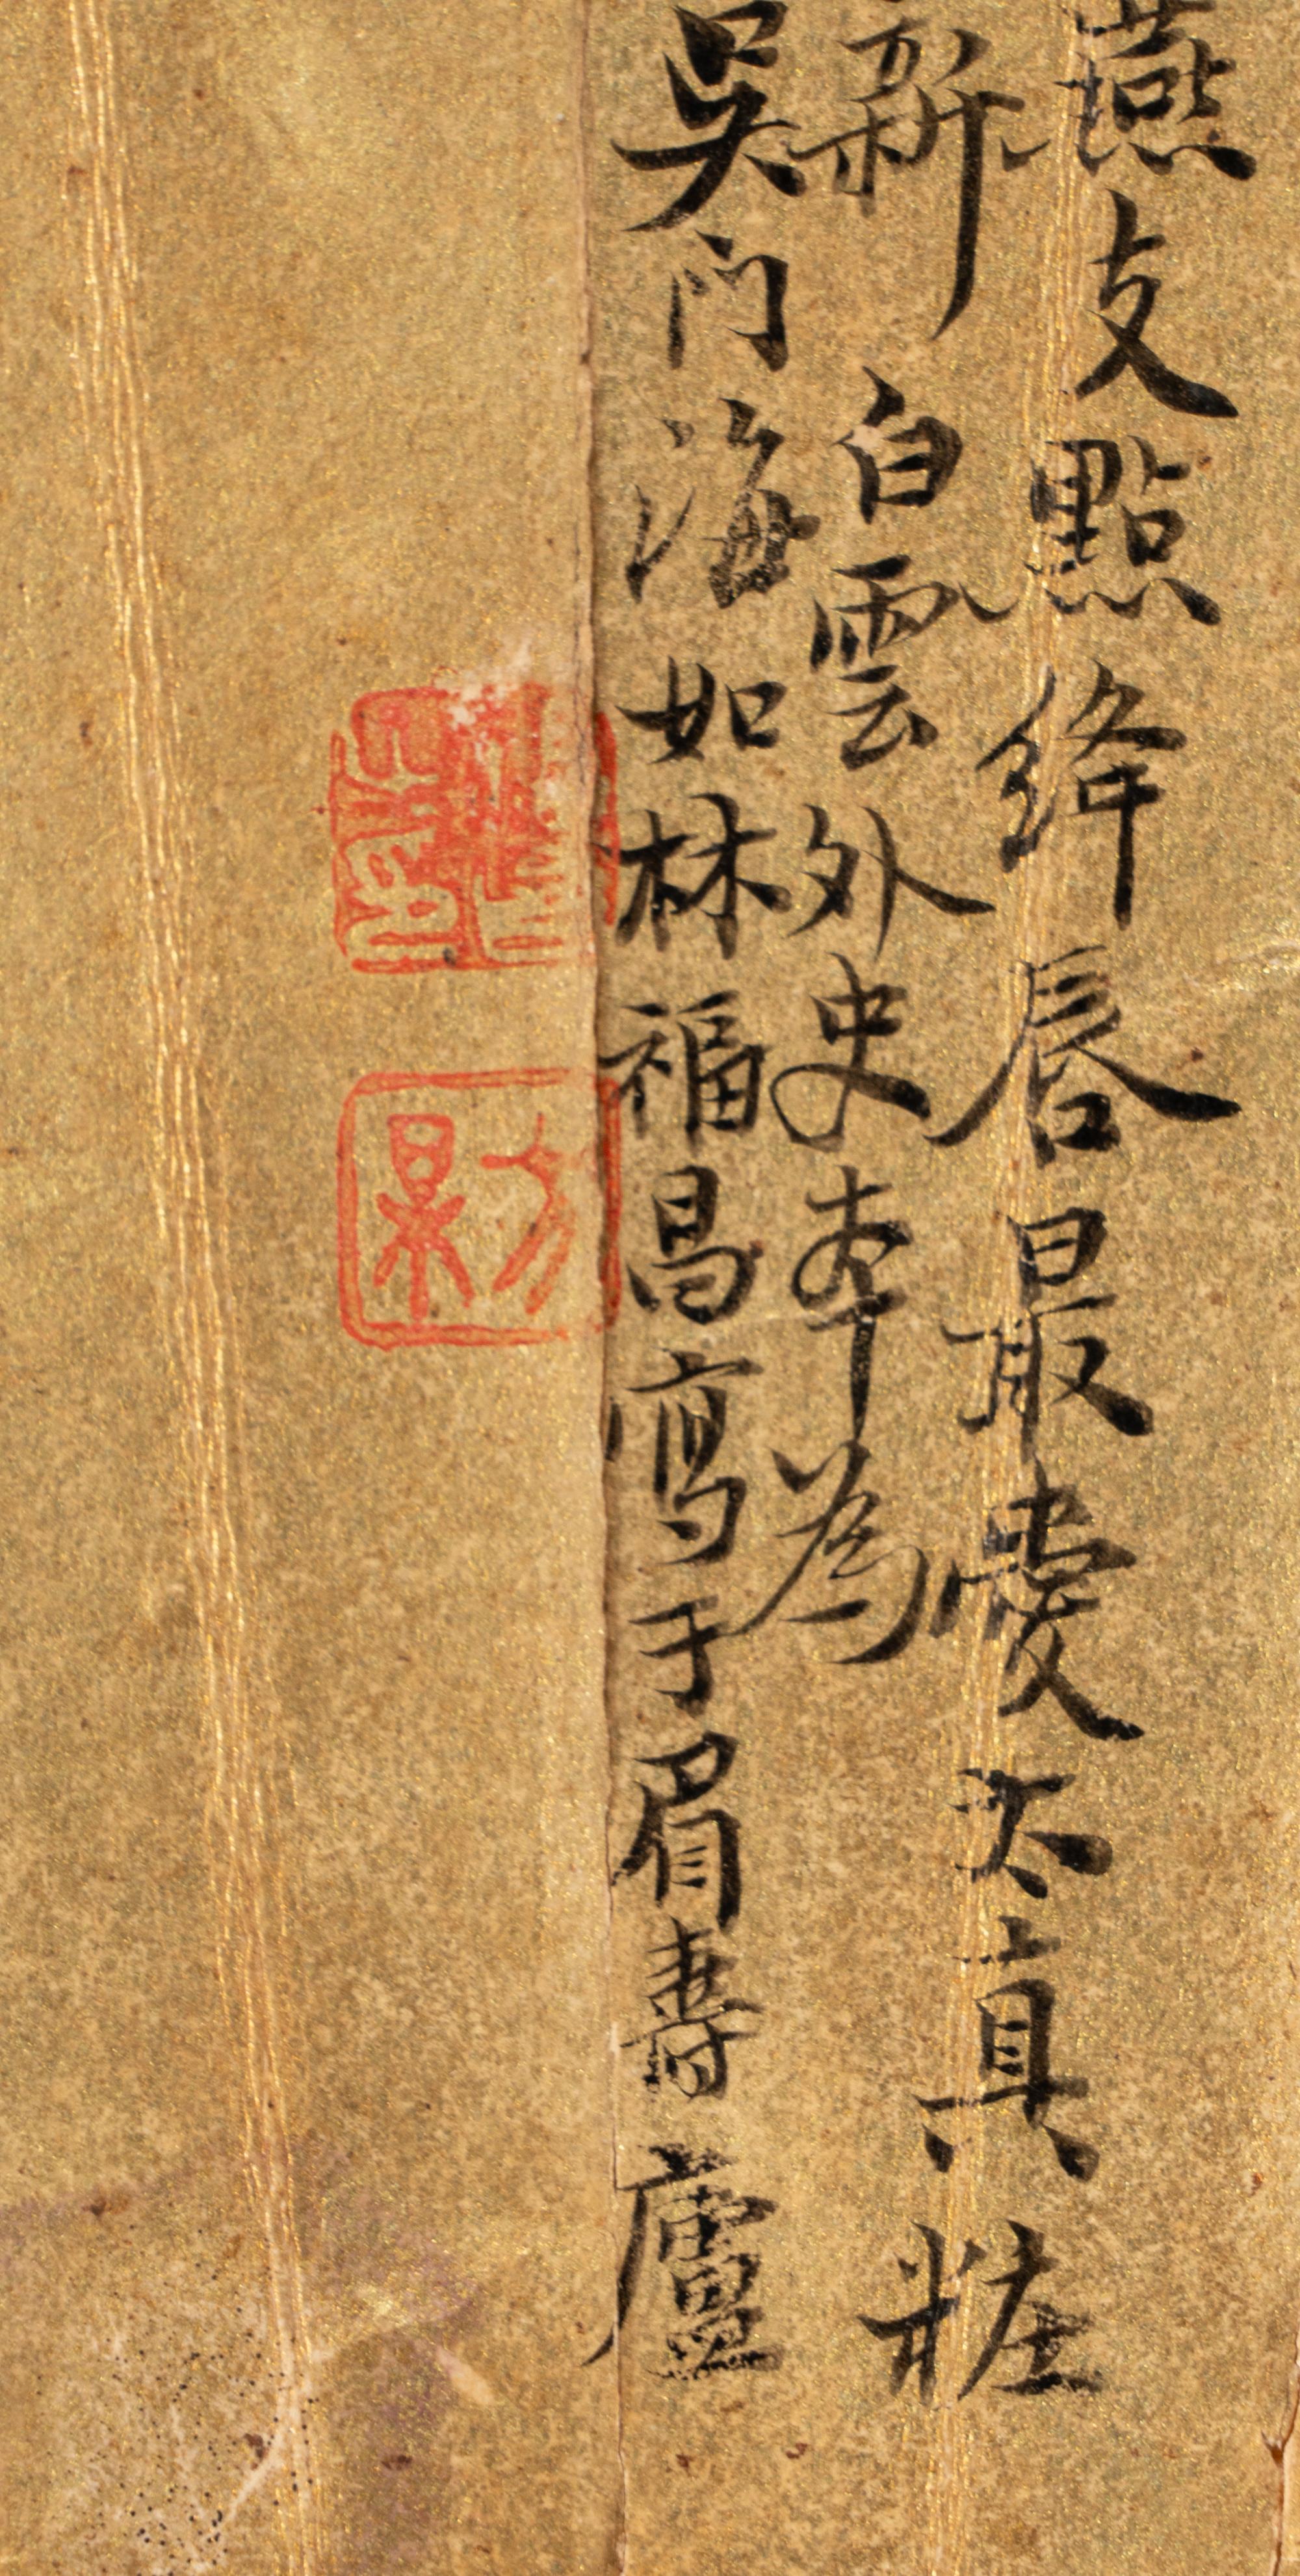 燕支點絳唇最愛太真粧
新 白雲外史本為
吳門海如林福昌寫于眉壽廬